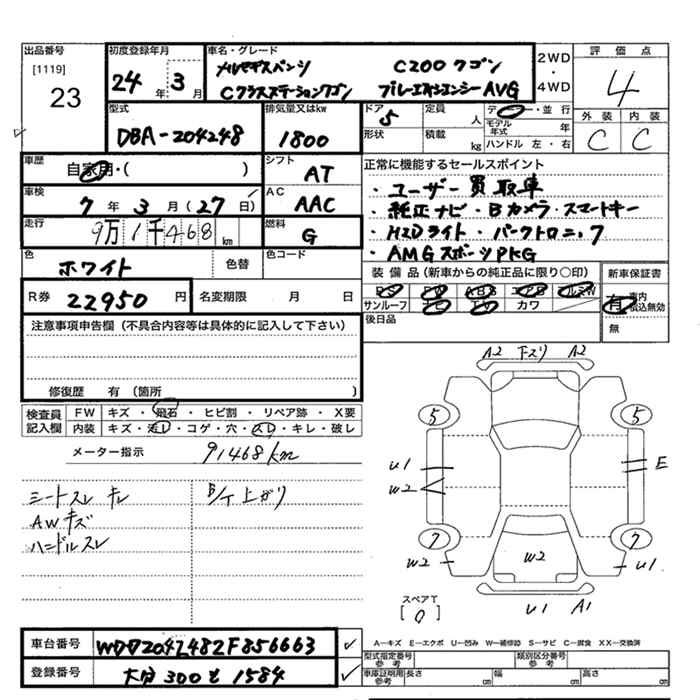 出品番号
[1119]
23
初度登録年月
24年 3月
車名・グレード
メルセデスベンツ C200 ワゴン
Cクラスステーションワゴン ブルーエフィシェンシー AVG
2WD
・
4WD
評価点
4
外装 内装
C C
型式
DBA-204248
排気量又はkw
1800
ドア 5
定員 人
デ・並行
モデル年式 年
形状
積載 kg
ハンドル 左・右
車歴
自家用・( )
シフト
AT
車検
7年 3月 (27日)
AC
AAC
走行
9万1千468km
燃料
G
正常に機能するセールスポイント
・ユーザー買取車
・純正ナビ・Bカメラ・スマートキー
・HIDライト・パークトロニック
・AMGスポーツPKG
色
ホワイト
色替
色コード
R券 22950円
名変期限 月 日
装備品(新車からの純正品に限り○印)
PS PW ABS エアB アルミW
サンルーフ カワ
後日品
新車保証書
有 車内 積込無効
無
注意事項申告欄(不具合内容等は具体的に記入して下さい)
修復歴 有(箇所 )
検査員記入欄
FW キズ・飛石・ヒビ割・リペア跡・X要
内装 キズ・汚レ・コゲ・穴・スレ・キレ・破レ
メーター指示 91468km
シートスレ キレ
AWキズ
ハンドルスレ
下上がり
A2 下スリ A2
5 5
U1 E
W2
7 7
W2 W2 U1
スペアT
[0]
U1 A1
A―キズ E―エクボ U―凹み W―補修跡 S―サビ C―腐食 XX―交換済
車台番号
WDD2042482F856663
登録番号
大分 300 も 1584
型式指定番号 参考
類別区分番号 参考
車庫証明用 参考
長さ cm 幅 cm 高さ cm